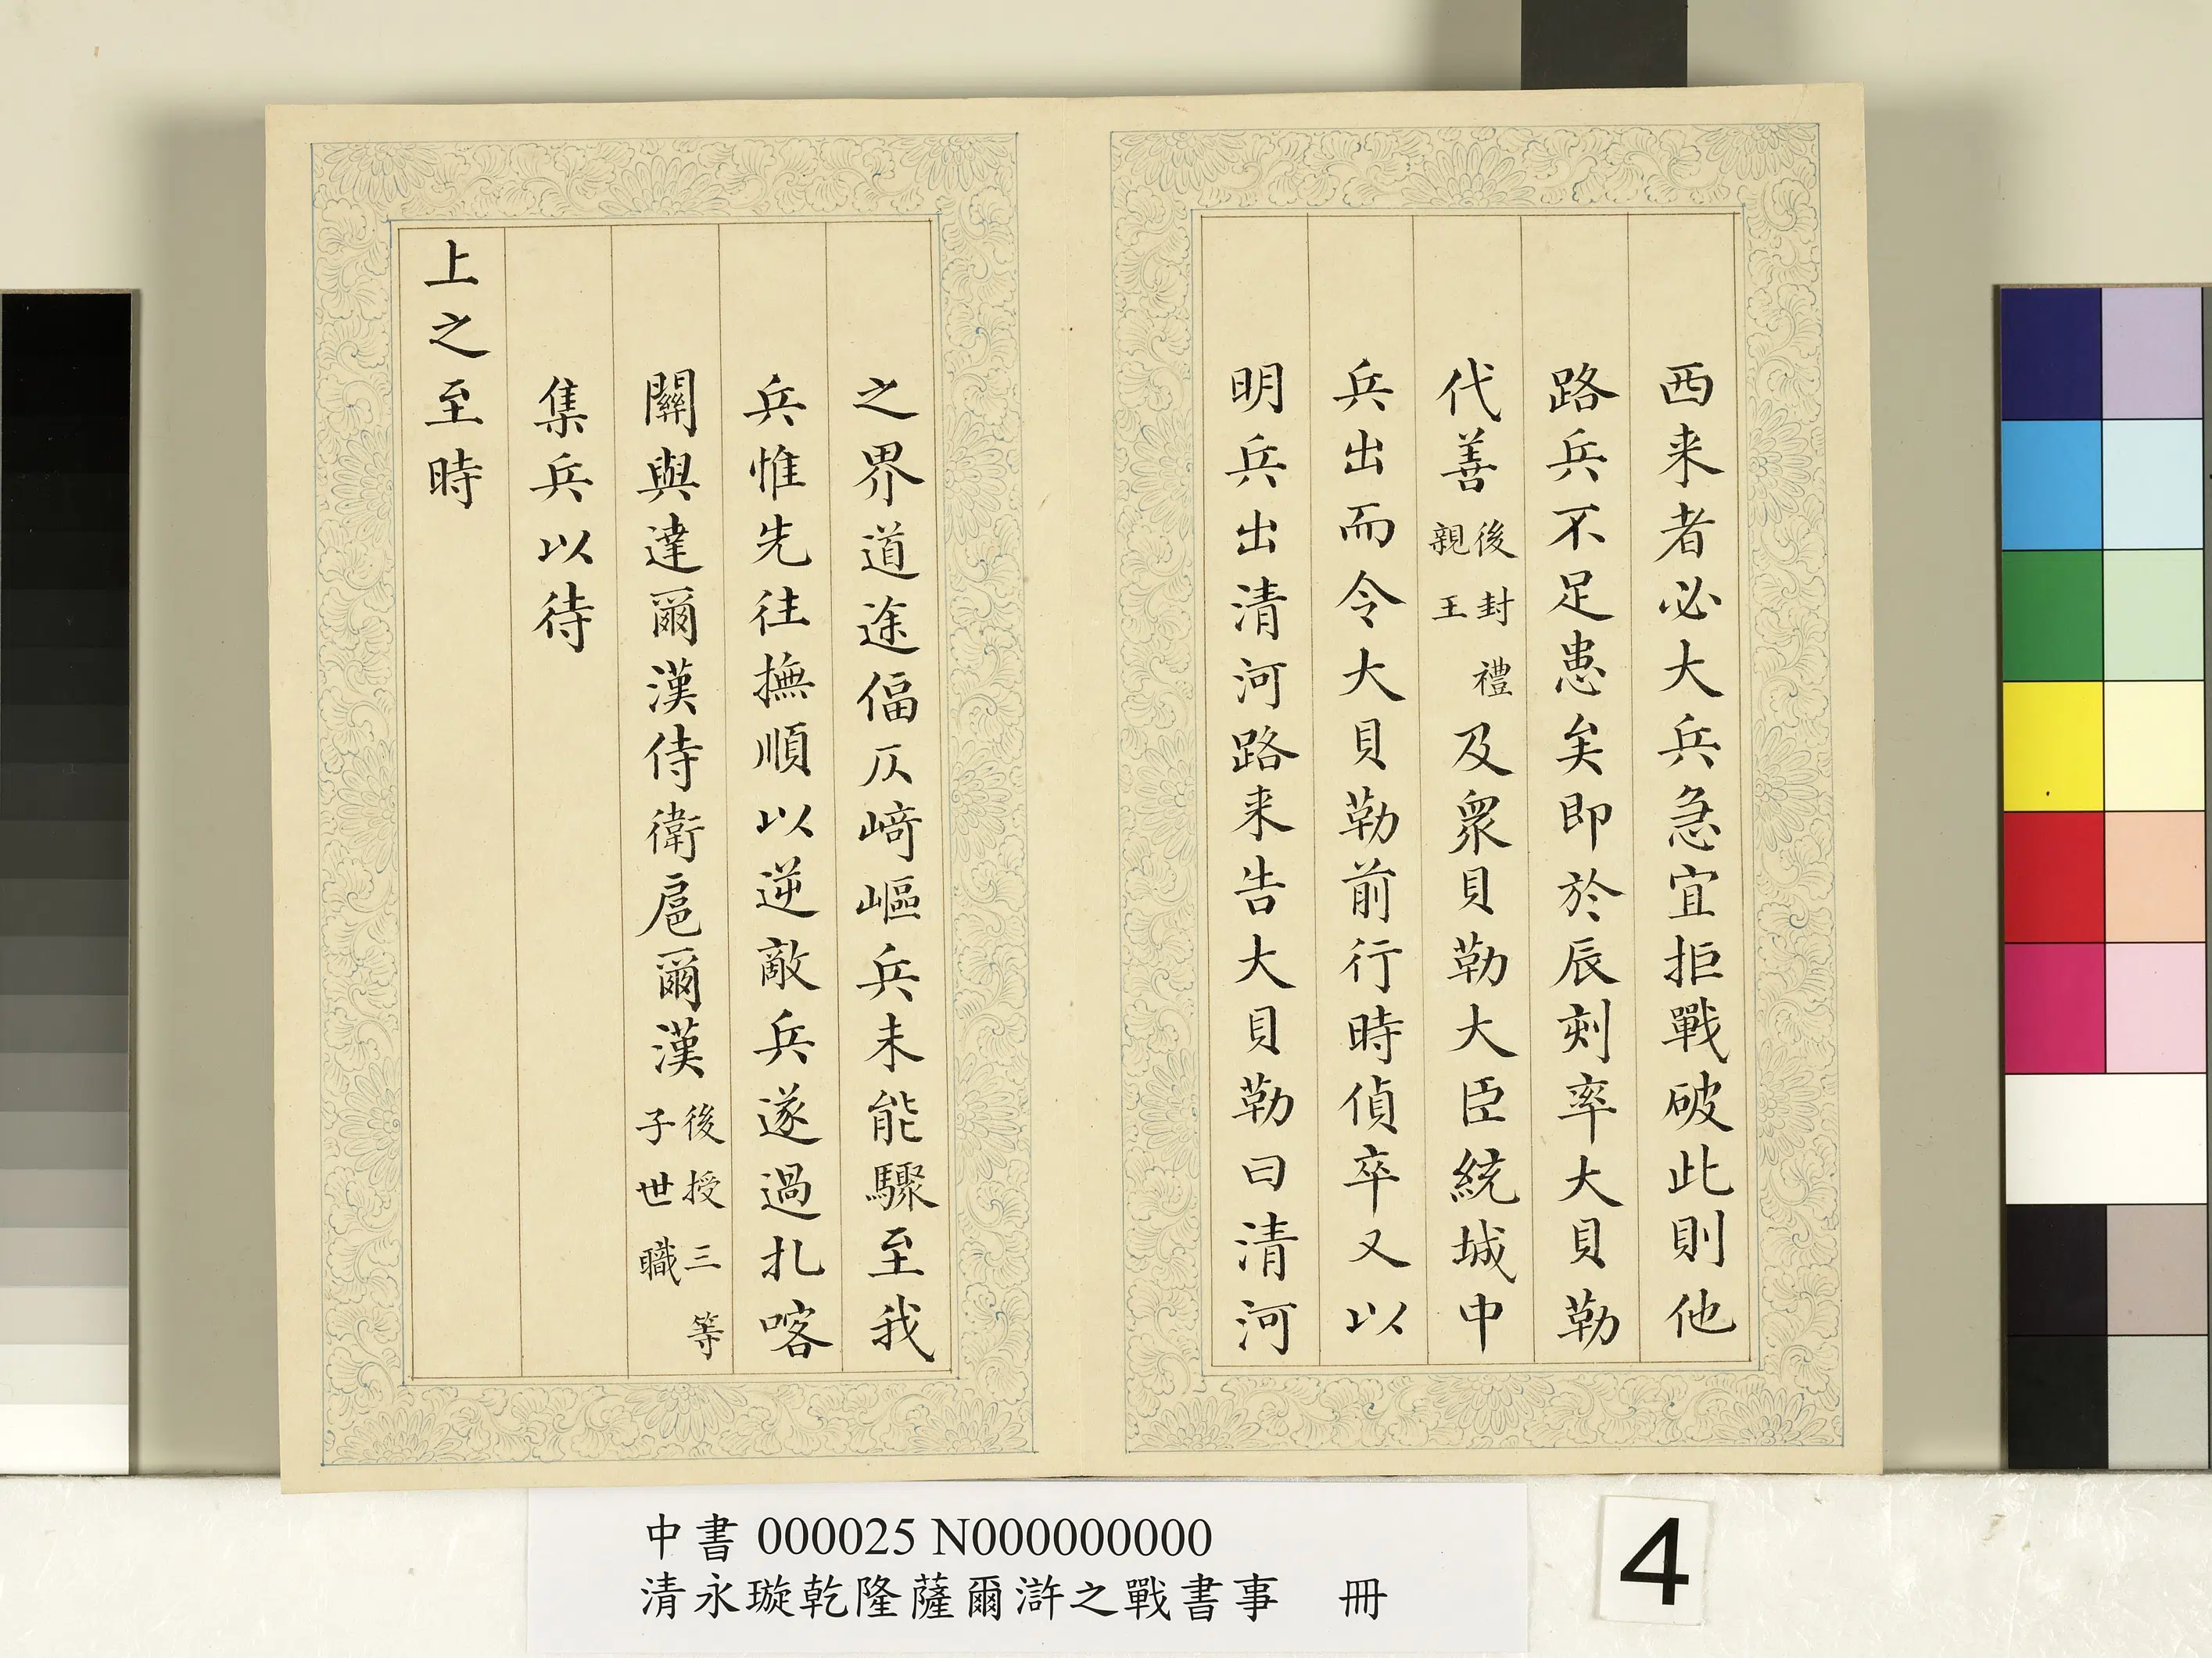 西来者必大兵急宜拒戰破此則他
路兵不足患矣即於辰刻率大貝勒
代善後封禮親王及衆貝勒大臣統城中
兵出而令大貝勒前行時偵卒又以
明兵出清河路来告大貝勒曰清河
之界道途偪仄﨑嶇兵未能驟至我
兵惟先往撫順以逆敵兵遂過扎喀
關與達爾漢侍衛扈爾漢後授三等子世職
集兵以待
上之至時
中書 000025 N000000000
清永璇乾隆薩爾滸之戰書事 冊
4